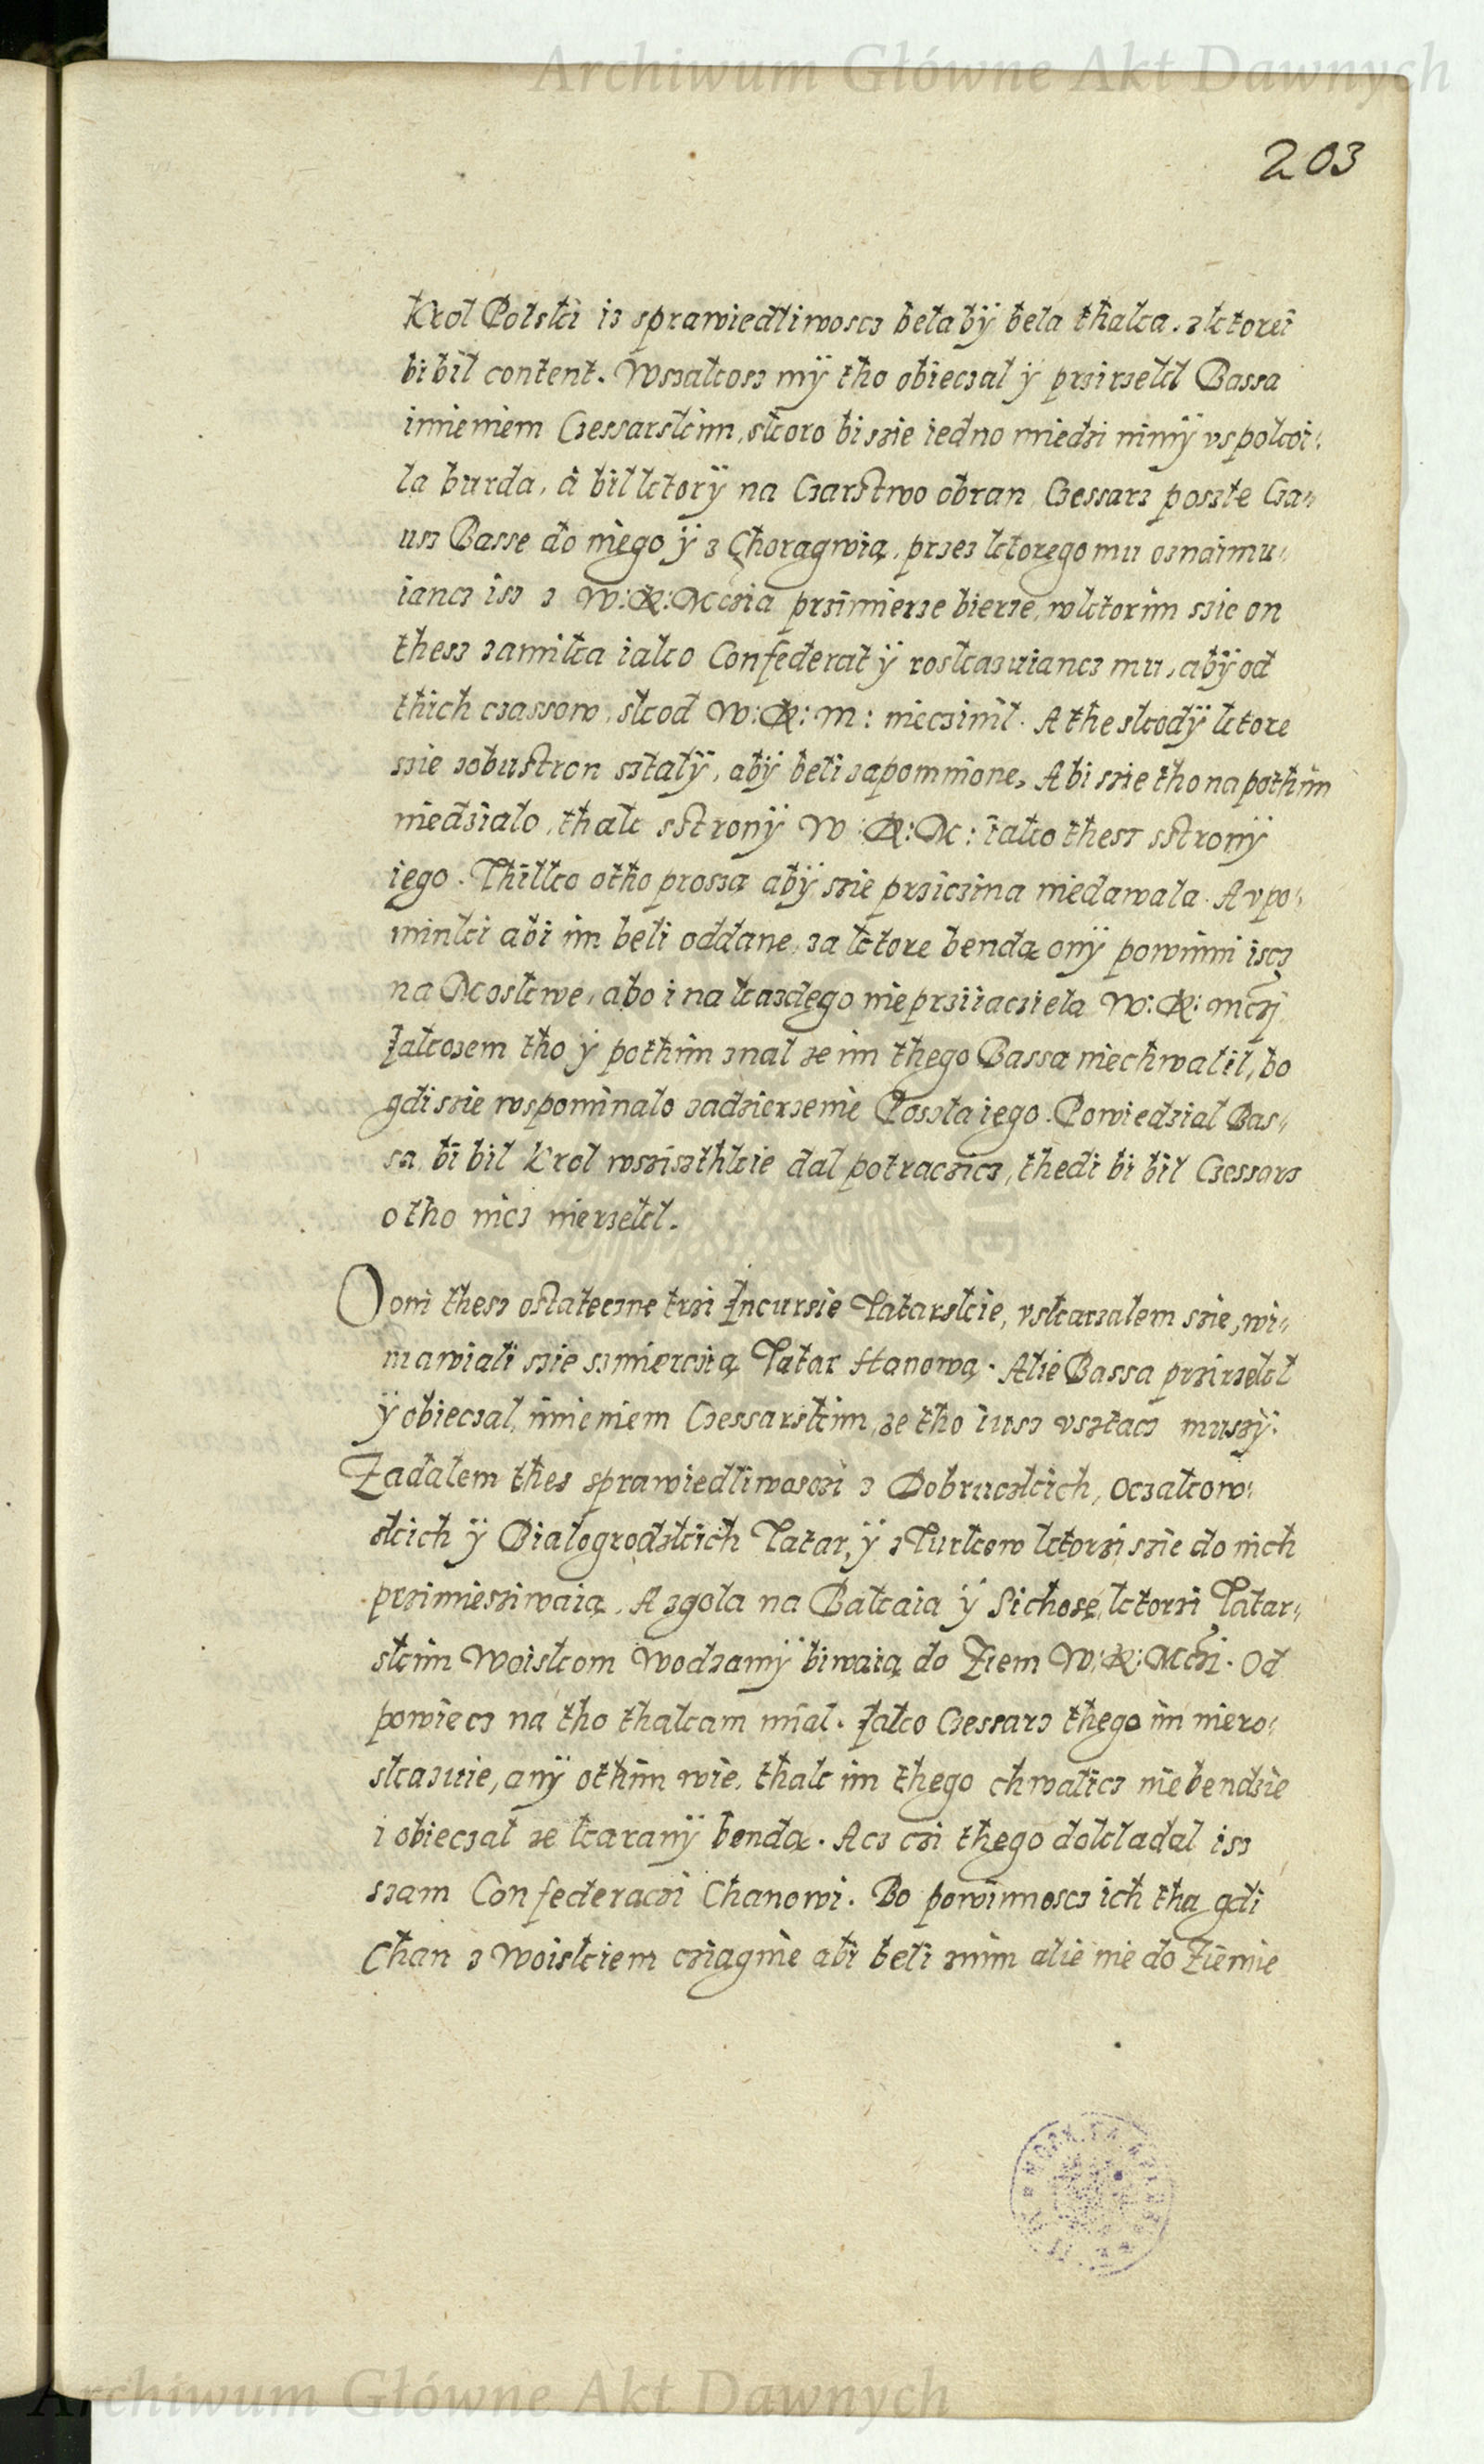 Archiwum Główne Akt Dawnych
203
Krol Polski iz sprawiedliwoscz belaby bela thaka, zktorei
bi bil content. Wszakosz my tho obieczal ÿ przirzekl Bassa
imieniem Czessarskim, skoro bi szie iedno miedzi nimÿ vspokoi:
la burda, á bil ktorÿ na Czarstwo obran, Czessarz poszle Cza-
usz Basse do niego ÿ z Choragwią, przez ktorego mu oznaimu-
iancz isz z W: K: Mczia przimierze bierze, wktorim szie on
thesz zamika iako Confederat ÿ roskazuiancz mu, abÿ od
thich czassow, skod W: K: M: nieczinil. A the skodÿ ktore
szie zobustron sztalÿ, abÿ beli zapomnione, Abi szie tho napothim
niedzialo, thak sstronÿ W: K: M: iako thesz sstronÿ
iego. Thilko otho prosza abÿ szie prziczina niedawala. A vpo-
minki abi im beli oddane, za ktore benda onÿ powinni iscz
na Moskwe, abo i na kazdego nieprziiaciela W: K: Mczi
Jakozem tho ÿ pothim znal ze im thego Bassa niechwalil, bo
gdi szie wspominalo zadzierzenie Poszla iego. Powiedzial Bas-
sa, bi bil Krol wsziszthkie dal potraczicz, thedi bi bil Czessarz
o tho nicz nierzekl.
O oni thesz ostateczne trzi Incursie Tatarskie, vskarzalem szie, wi-
mawiali szie szmierczią Tatar Hanową. Alie Bassa przirzekl
ÿ obieczal, imieniem Czessarskim, ze tho iusz vsztacz muszÿ.
Ządalem thez sprawiedliwosczi z Dobruczkich, Oczakow-
skich ÿ Bialogrodzkich Tatar, ÿ zTurkow ktorzi szie do nich
przimiesziwaią. A zgola na Bakaia ÿ Sichosę, ktorzi Tatar-
skim Woiskom Wodzamÿ biwaią do Ziem W: K: Mczi. Od
powiecz na tho thakam mial. Jako Czessarz thego im niero-
skazuie, anÿ othim wie, thak im thego chwalicz niebendzie
i obieczal ze karanÿ benda. Acz czi thego dokladal isz
szam Confederaczi Chanowi. Bo powinnoscz ich tha gdi
Chan z Woiskiem cziagnie abi beli znim alie nie do Ziemie
Archiwum Główne Akt Dawnych